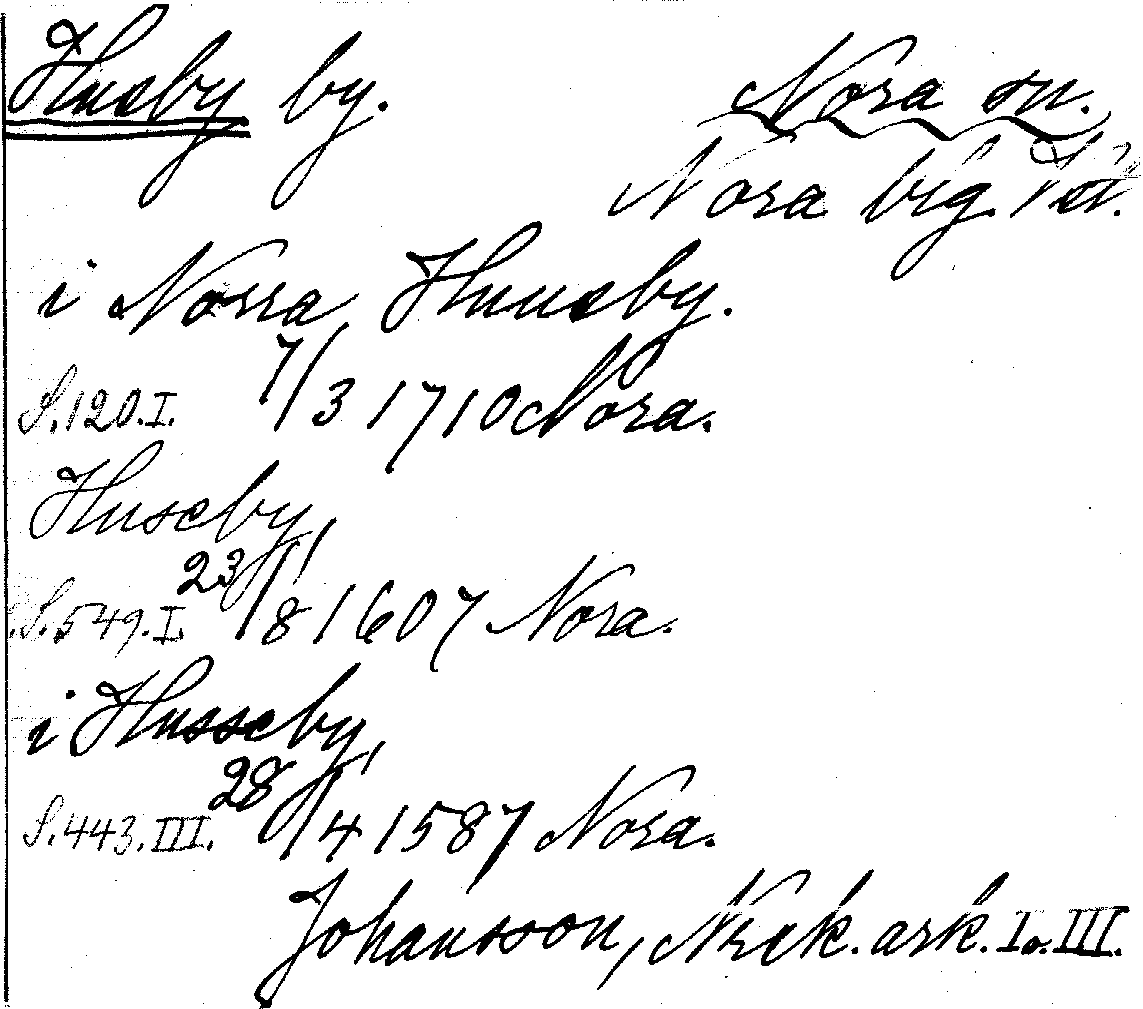 Husby by. Nora sn.
Nora blg. Vstl.
i Norra Huusby.
S.120.I. 7/3 1710 Nora.
Huseby,
S.549.I. 23/8 1607 Nora.
i Husseby,
S.443.III. 28/4 1587 Nora.
Johansson, Nor. ark. I o. III.